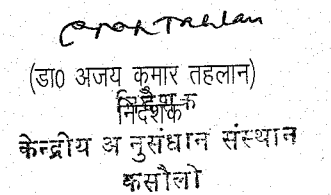 (डा0 अजय कुमार तहलान)
निदेशक
केन्द्रीय अनुसंधान संस्थान
कसौली